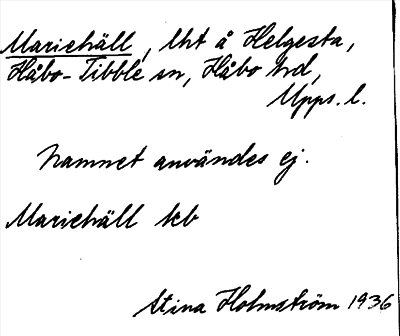 Mariehäll, lht å Helgesta,
Håbo-Tibble sn, Håbo hd,
Upps. l.
Namnet användes ej.
Mariehäll kb
Stina Holmström 1936